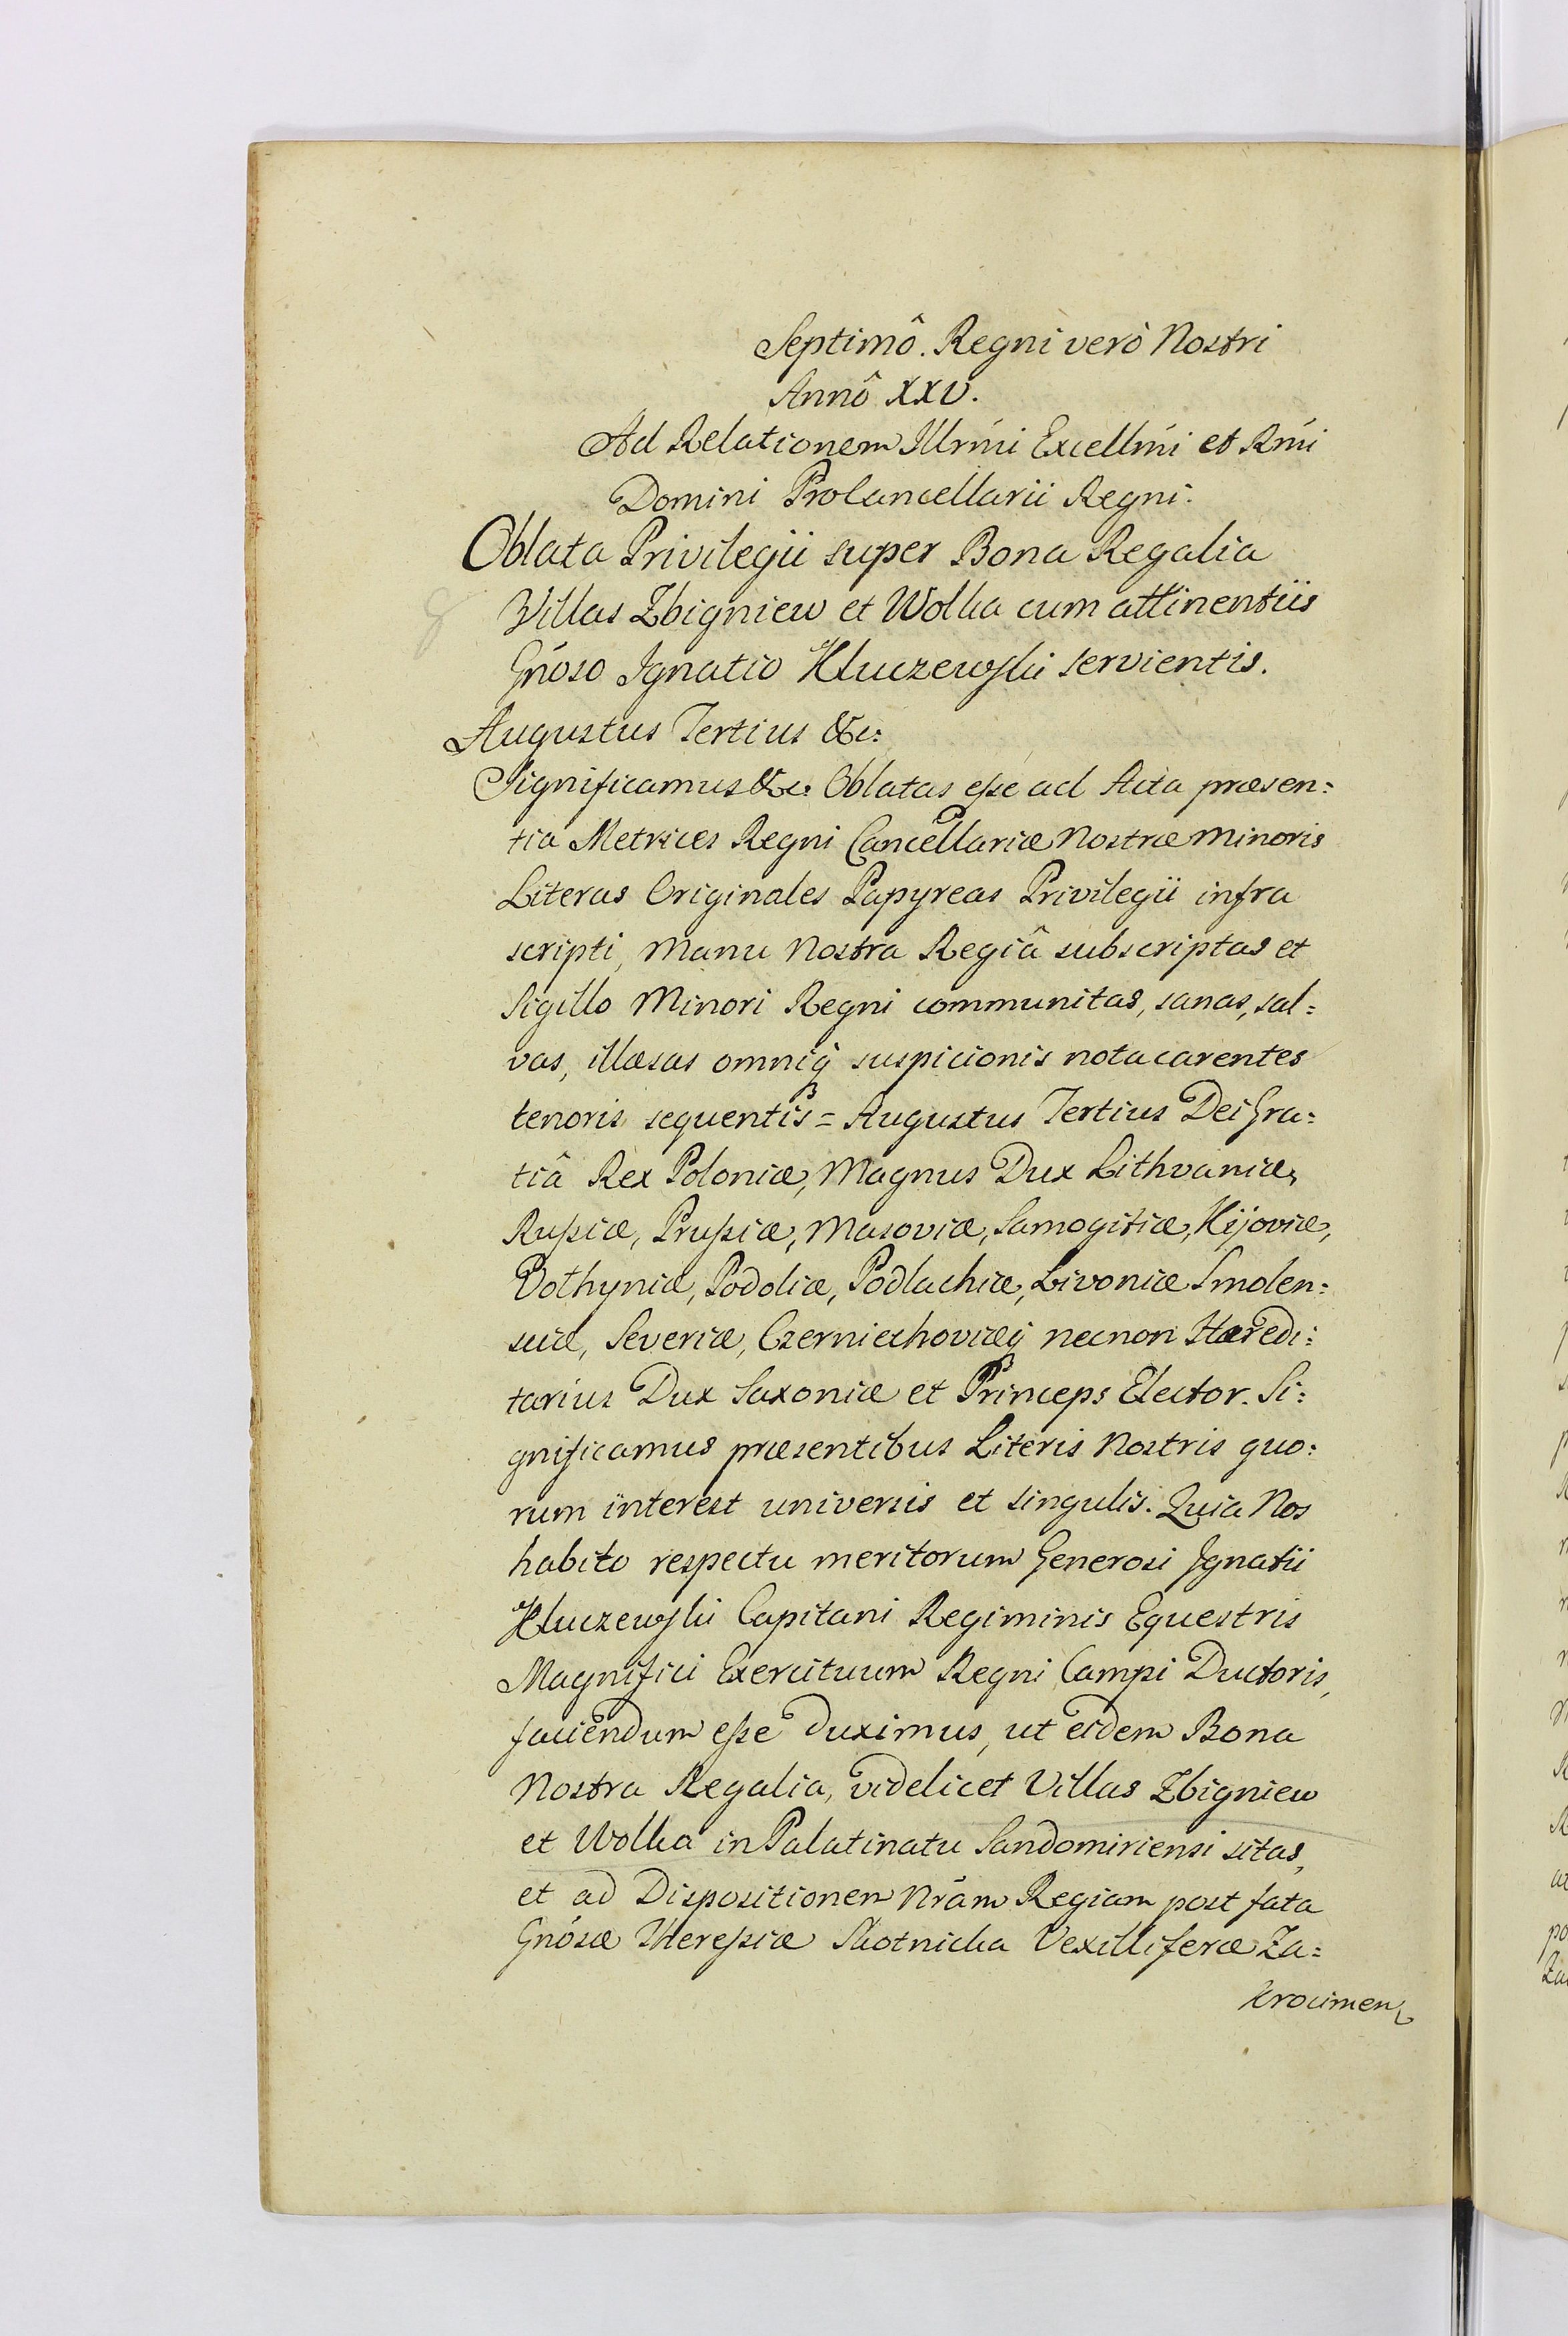 Septimô. Regni verò Nostri
Annô XXV.
Ad Relationem Illrmi Excellmi et Rmi
Domini ProCancellarii Regni.
Oblata Privilegii super Bona Regalia
Villas Zbigniew et Wolka cum attinentiis
Gnoso Ignatio Kluczewski servientis.
Augustus Tertius &c:
Significamus &c: Oblatas esse ad Acta præsen:
tia Metrices Regni Cancellariæ Nostræ Minoris
Literas Originales Papyreas Privilegii infra
scripti, Manu Nostra Regiâ subscriptas et
Sigillo Minori Regni communitas, sanas, sal:
vas, illæsas omniq suspicionis nota carentes
tenoris sequentis = Augustus Tertius Dei Gra:
tiâ Rex Poloniæ, Magnus Dux Lithvaniæ,
Russiæ, Prussiæ, Masoviæ, Samogitiæ, Kijoviæ,
Volhyniæ, Podoliæ, Podlachiæ, Livoniæ Smolen:
sciæ, Severiæ, Czerniechoviæq necnon Hæredi:
tarius Dux Saxoniæ et Princeps Elector. Si:
gnificamus præsentibus Literis Nostris quo:
rum interest universis et singulis. Quia Nos
habito respectu meritorum Generosi Ignatii
Kluczewski Capitani Regiminis Equestris
Magnifici Exercituum Regni Campi Ductoris,
faciendum esse duximus, ut eidem Bona
Nostra Regalia, videlicet Villas Zbigniew
et Wolka in Palatinatu Sandomiriensi sitas,
et ad Dispositionem Nrám Regiam post fata
Gnósæ Theressiæ Skotnicka Vexilliferæ Za:
krocimen